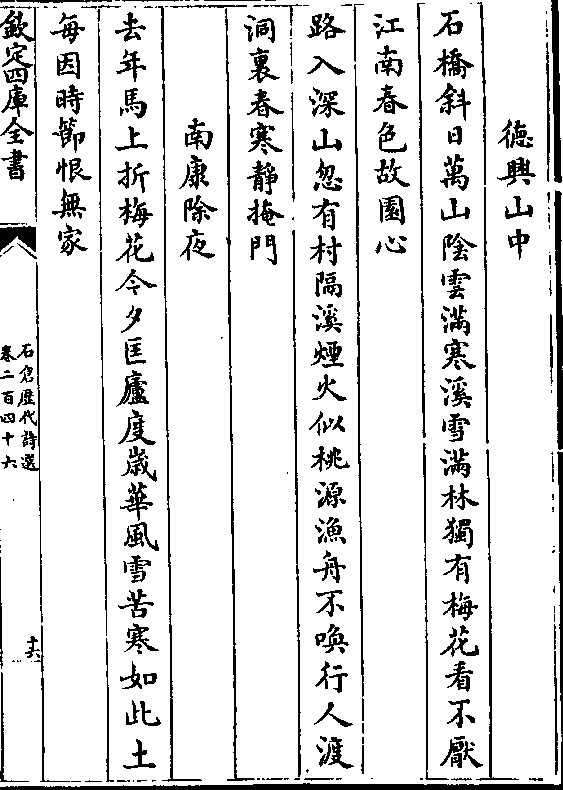 德興山中
石橋斜日萬山陰雲滿寒溪雪滿林獨有梅花看不厭
江南春色故園心
路入深山忽有村隔溪煙火似桃源漁舟不喚行人渡
洞裏春寒靜掩門
南康除夜
去年馬上折梅花今夕匡廬度歲華風雪苦寒如此土
每因時節恨無家
欽定四庫全書
石倉歷代詩選
卷二百四十六
十六